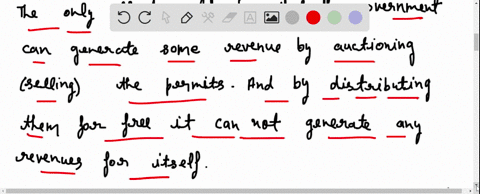 The only overnment
can generate some revenue by auctioning
(selling) the permits. And by distributing
them for free it can not generate any
revenues for itself.